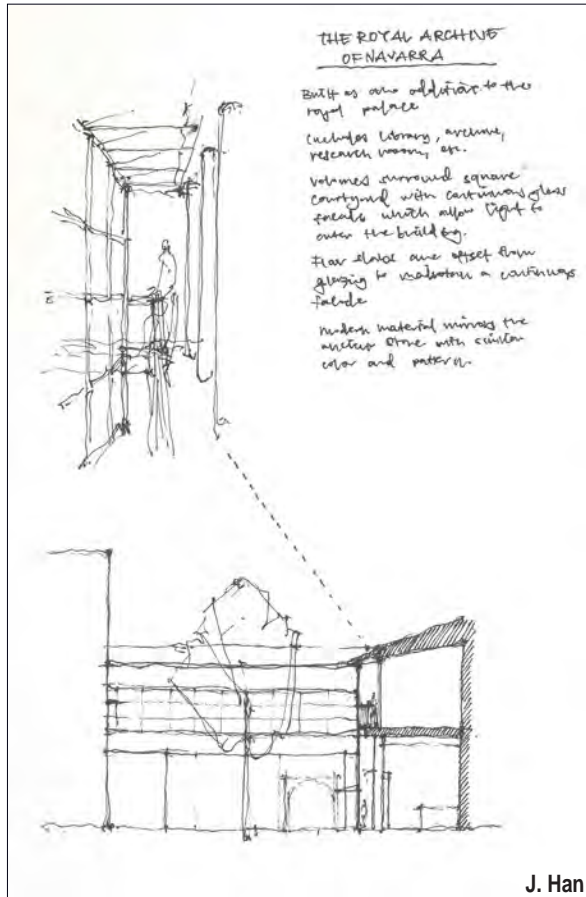 THE ROYAL ARCHIVE
OF NAVARRA
Built as an addition to the
royal palace
Includes library, archive,
research rooms, etc.
Volumes surround square
courtyard with continuous glass
facade which allow light to
enter the building.
Floor slabs are offset from
glazing to maintain a continuous
facade
modern material mirrors the
ancient stone with similar
color and pattern.
J. Han